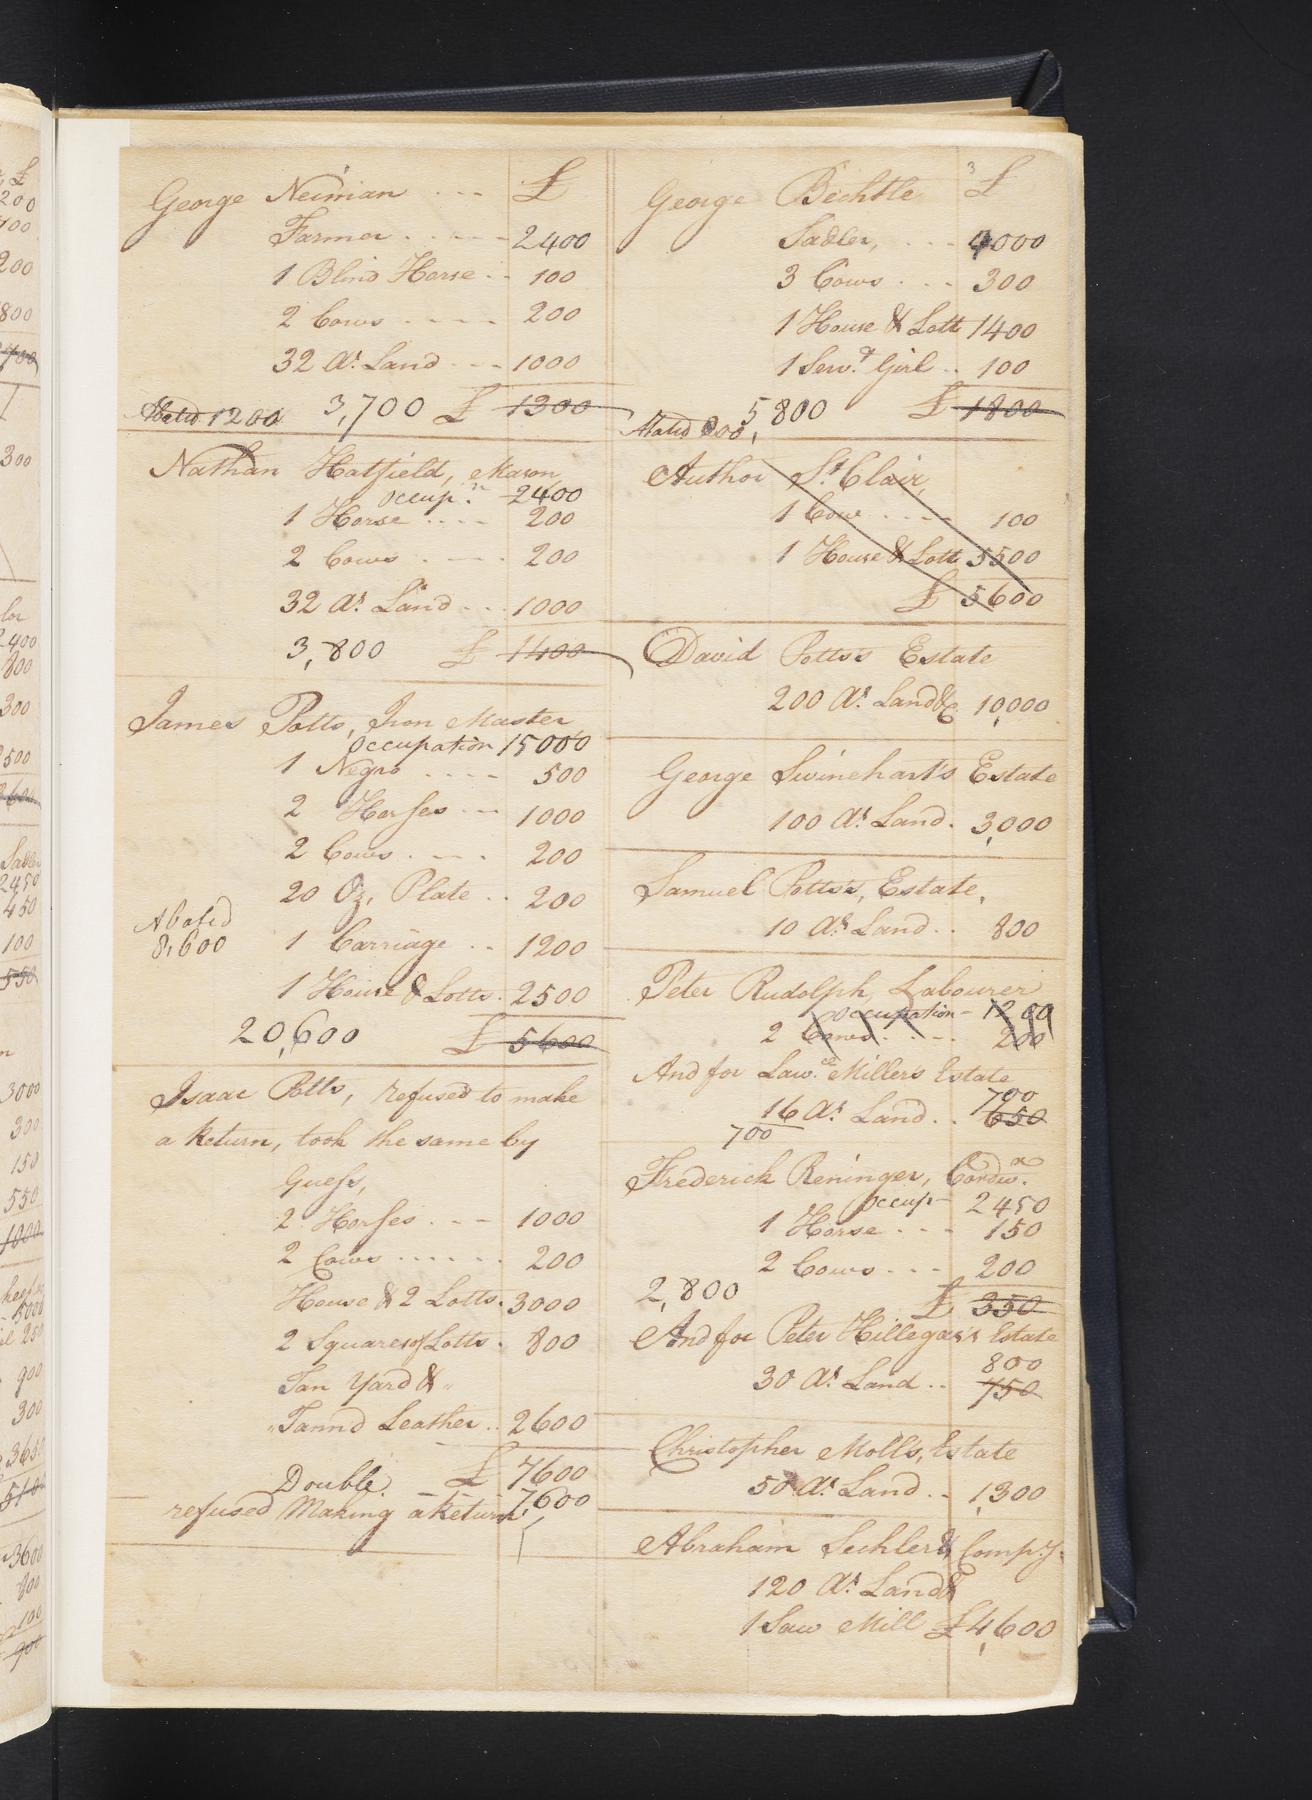 George Neiman - - - £
Farmer - - - - 2400
1 Blind Horse - - 100
2 Cows - - - - 200
32 As. Land - - - 1000
Abated 1200 3,700 £ 1300
Nathan Hatfield, Mason
occupn. 2400
1 Horse - - - - 200
2 Cows - - - 200
32 As. Land - - - 1000
3,800 £ 1400
James Potts, Iron Master
occupation 15000
1 Negro - - - - 500
2 Horses - - - 1000
2 Cows - - - 200
20 Oz. Plate - - 200
Abated
8,600 1 Carriage - - 1200
1 House & Lotts. 2500
20,600 £ 5600
Isaac Potts, refused to make
a Return, took the same by
Guess,
2 Horses - - - 1000
2 Cows - - - - - - 200
House & 2 Lotts. 3000
2 Squares of Lotts. 800
Tan Yard & "
"Tann'd Leather - - 2600
£ 7600
Double. - - 7,600
refused Making a Return
3
George Bechtle £
Sadler, - - - 4000
3 Cows - - - 300
1 House & Lott 1400
1 Servt. Girl - - 100
5800 £ 1800
Author St. Clair,
1 Cow - - - - 100
1 House & Lott 5500
£ 5600
David Potts's Estate
200 As. Land &c 10,000
George Swinehart's Estate
100 As. Land. 3,000
Samuel Potts's, Estate,
10 As. Land - - 800
Peter Rudolph, Labourer
occupation - 1200
2 Cows - - - 200
And for Lawce. Millers Estate
700
16 As. Land - - 650
700
Frederick Reninger, Cordwr.
occup - 2450
1 Horse - - - 150
2 Cows - - - 200
2,800 £ 350
And for Peter Hillegas's Estate
800
30 As. Land - - 750
Christopher Moll's, Estate
50 As. Land - - 1,300
Abraham Sechler & Compy.
120 As. Land &
1 Saw Mill £4,600